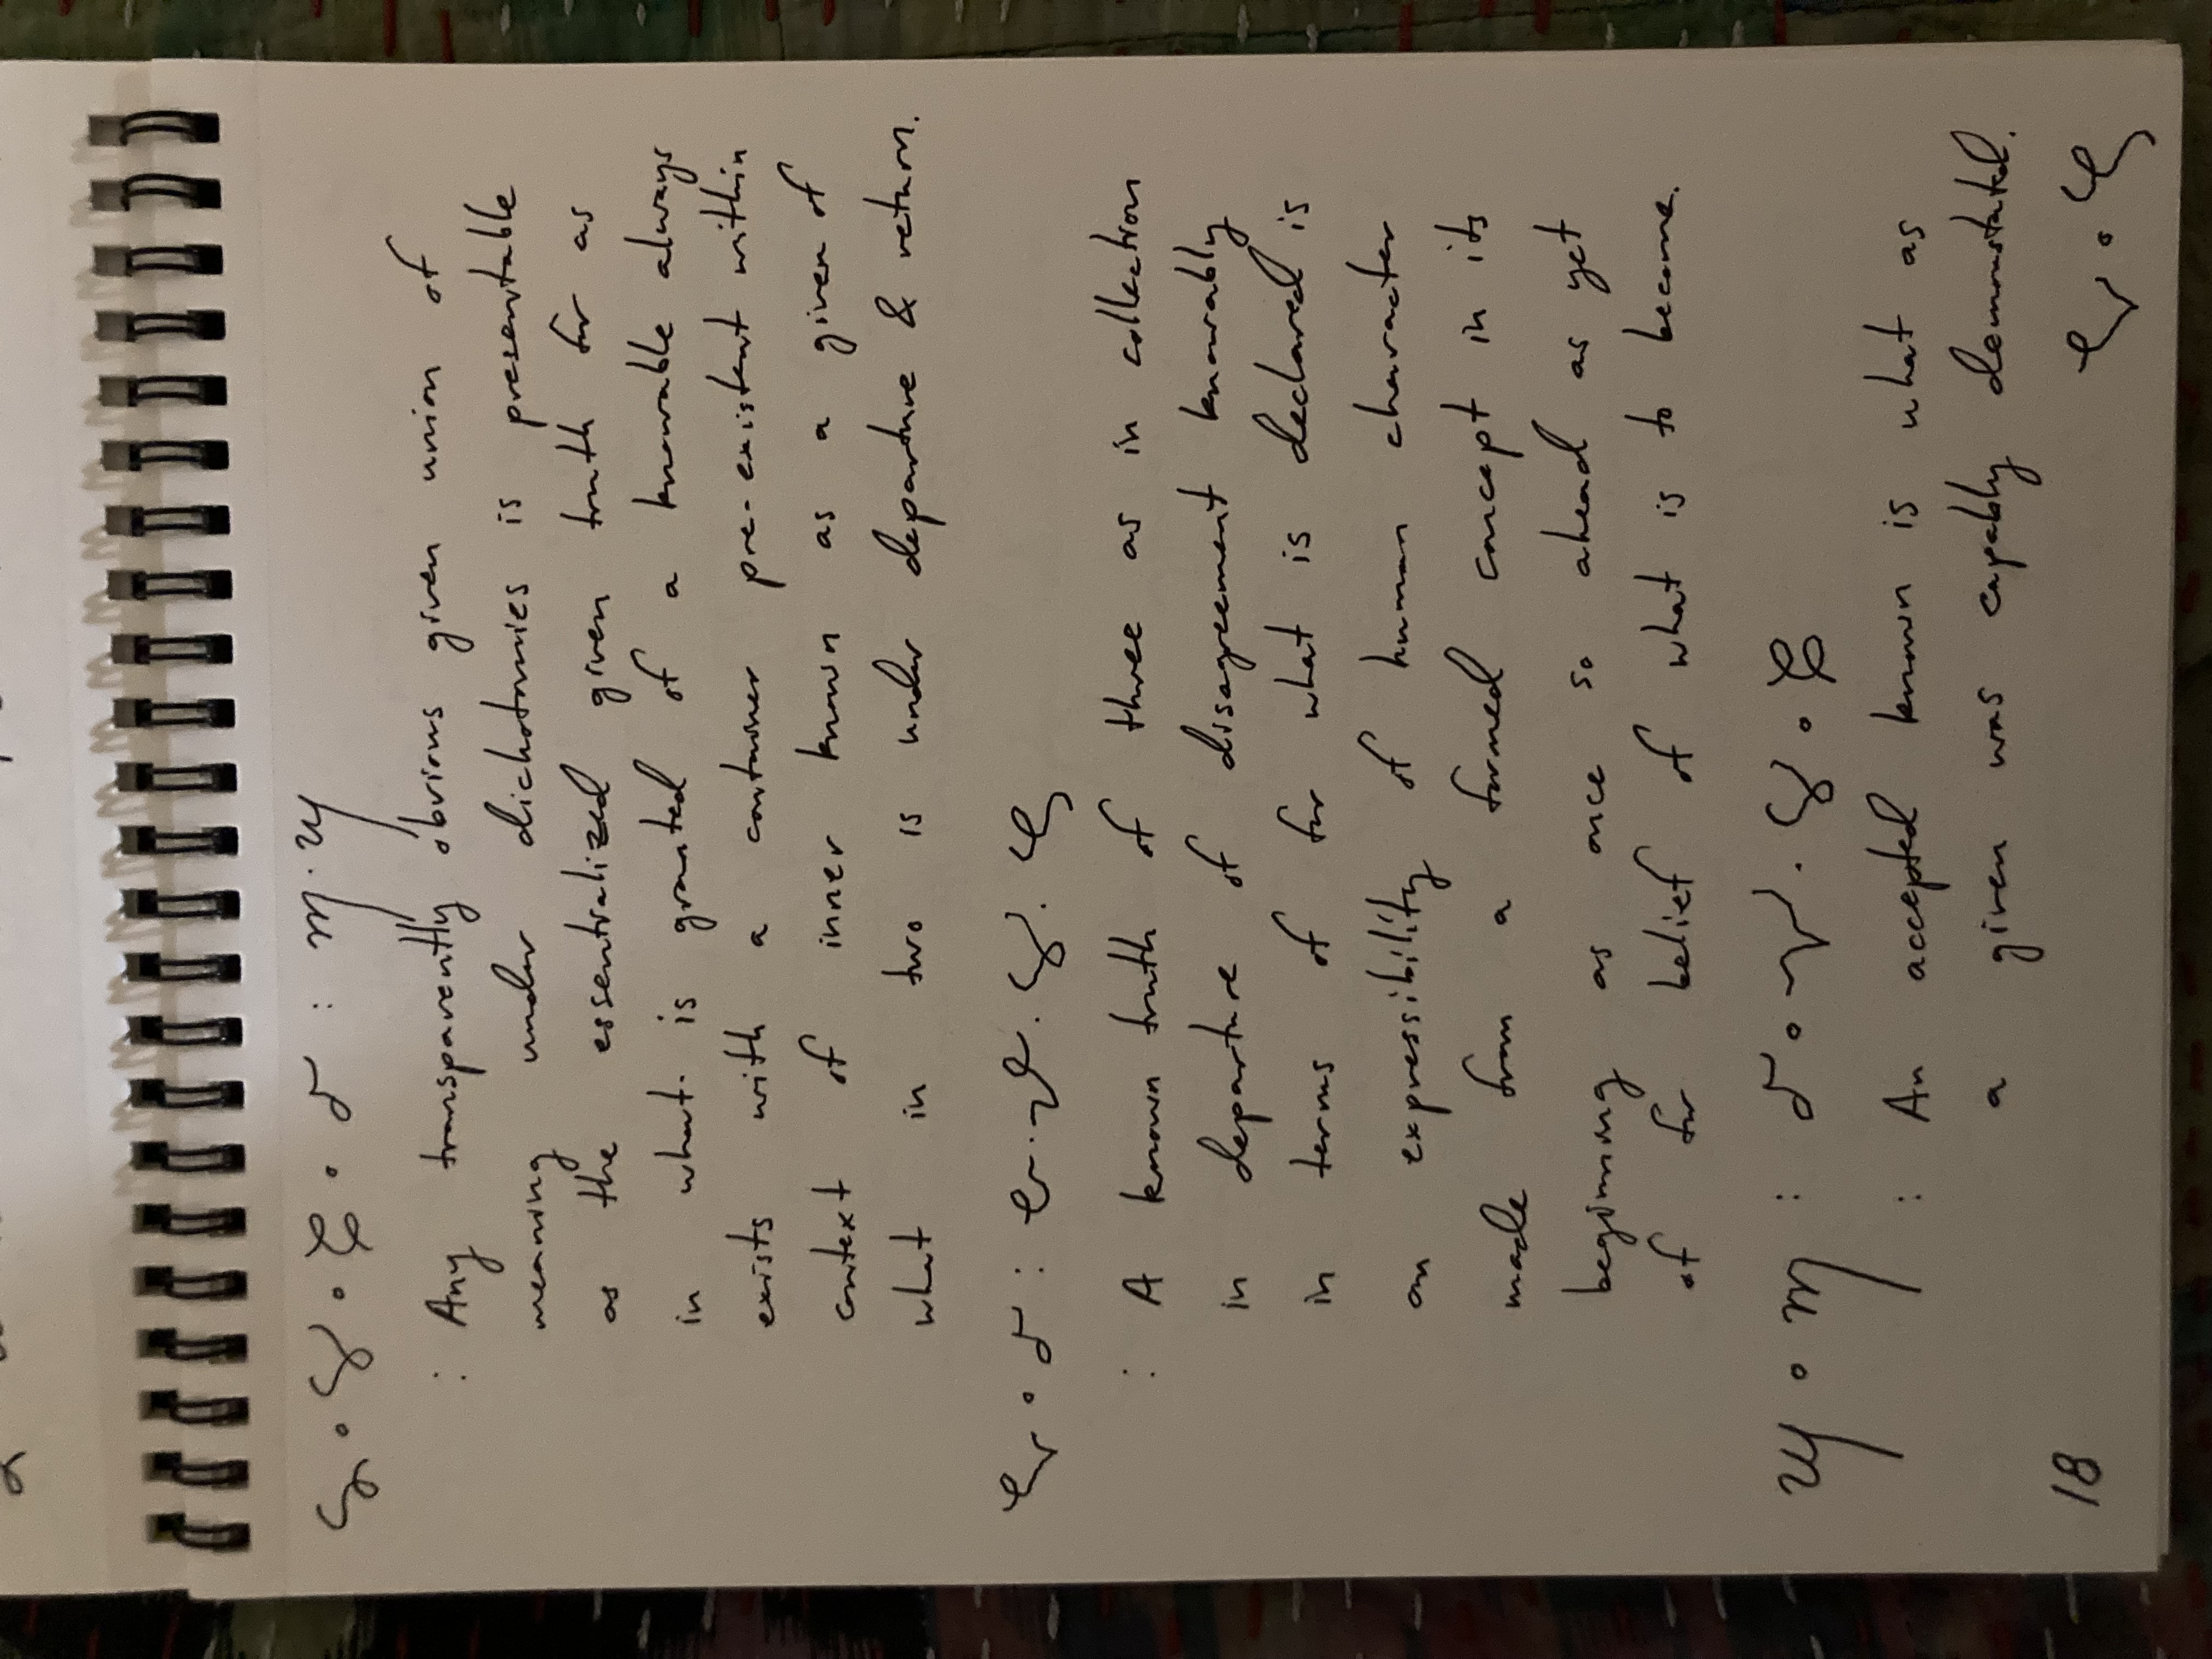 : Any transparently obvious given union of
meaning under dichotomies is presentable
as the essentialized given truth for as
in what is granted of a knowable always
exists with a container pre-existent within
context of inner known as a given of
what in two is under departure & return.
: A known truth of three as in collection
in departure of disagreement knowably
in terms of for what is declared is
an expressibility of human character
made from a formed concept in its
beginning as once so ahead as yet
of for belief of what is to become.
: An accepted known is what as
a given was capably demonstated.
18